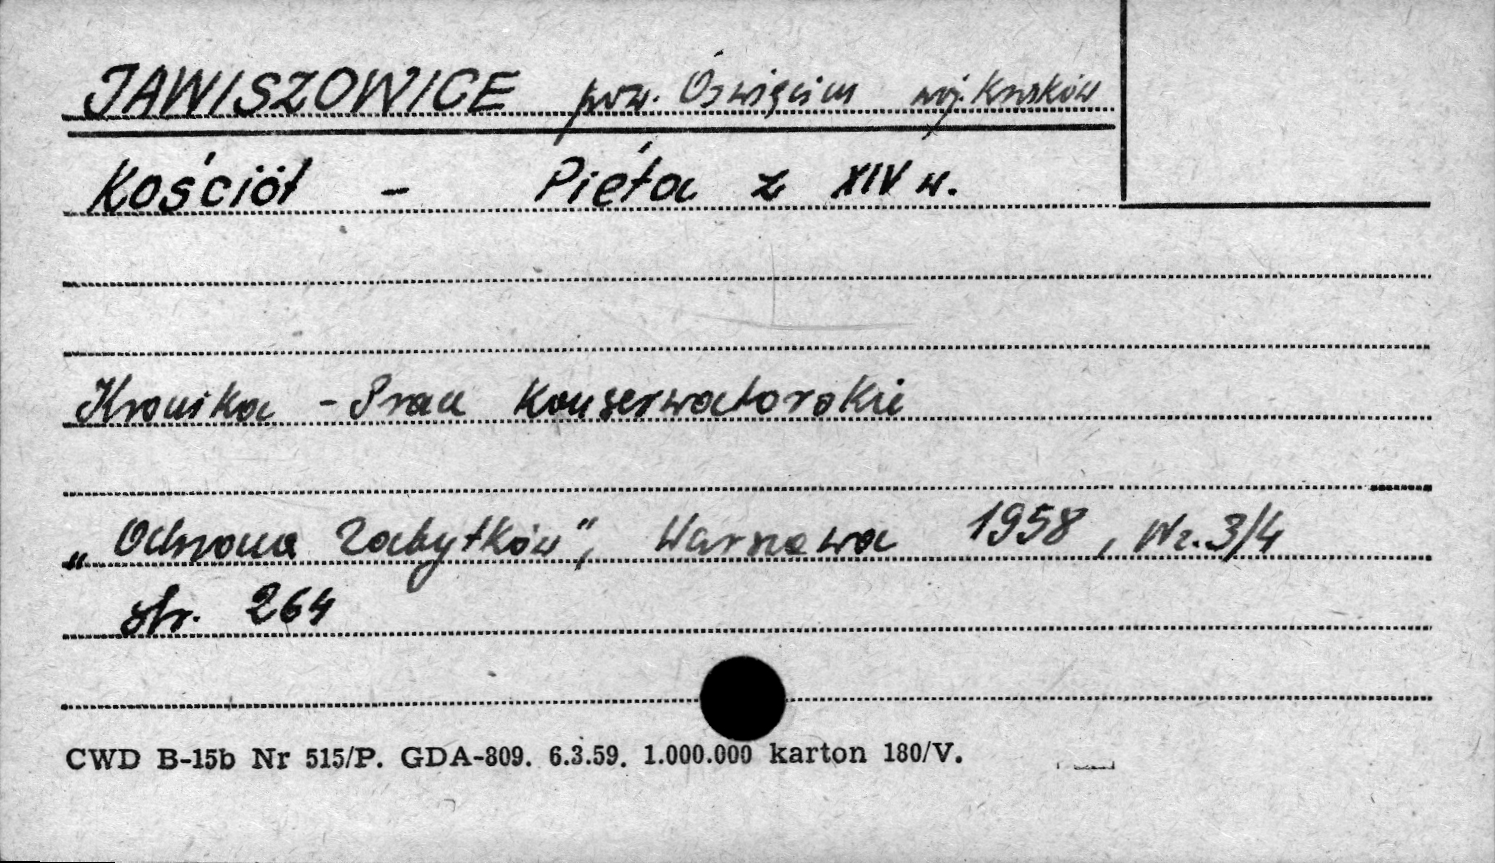 JAWISZOWICE pow. Oświęcim woj. Kraków
Kościół - Piéta z XIV w.
Kronika - Prace Konserwatorskie
„Ochrona Zabytków", Warszawa 1958, Nr. 3/4
str. 264
CWD B-15b Nr 515/P. GDA-809. 6.3.59. 1.000.000 karton 180/V.